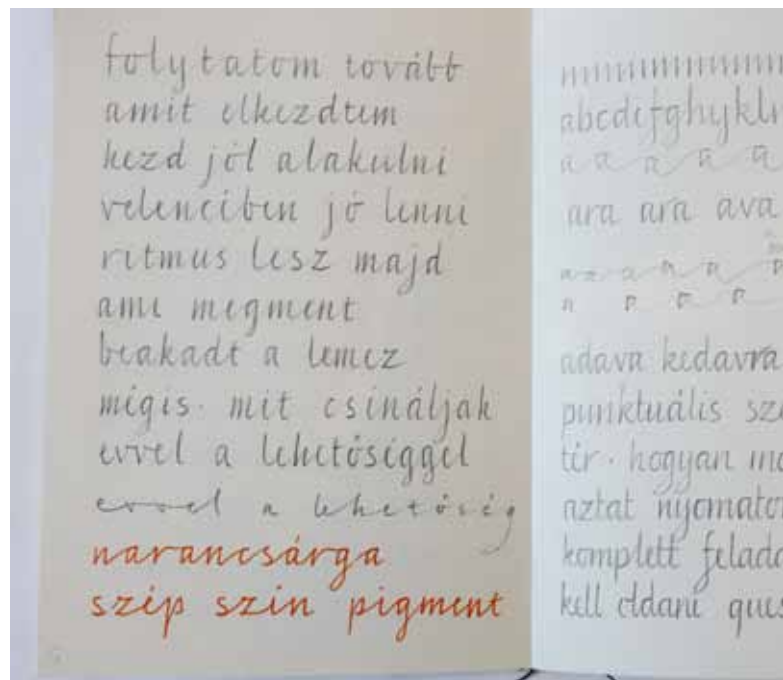 folytatom tovább
amit elkezdtem
kezd jól alakulni
velencében jó lenni
ritmus lesz majd
ami megment
beakadt a lemez
mégis. mit csináljak
evvel a lehetőséggel
evvel a lehetőség
narancsárga
szép szín pigment
abcdefghyjkl
a a a a a
ara ara ava
adava kedavra
punktuális
tér. hogyan
aztat
komplett
kell eldani